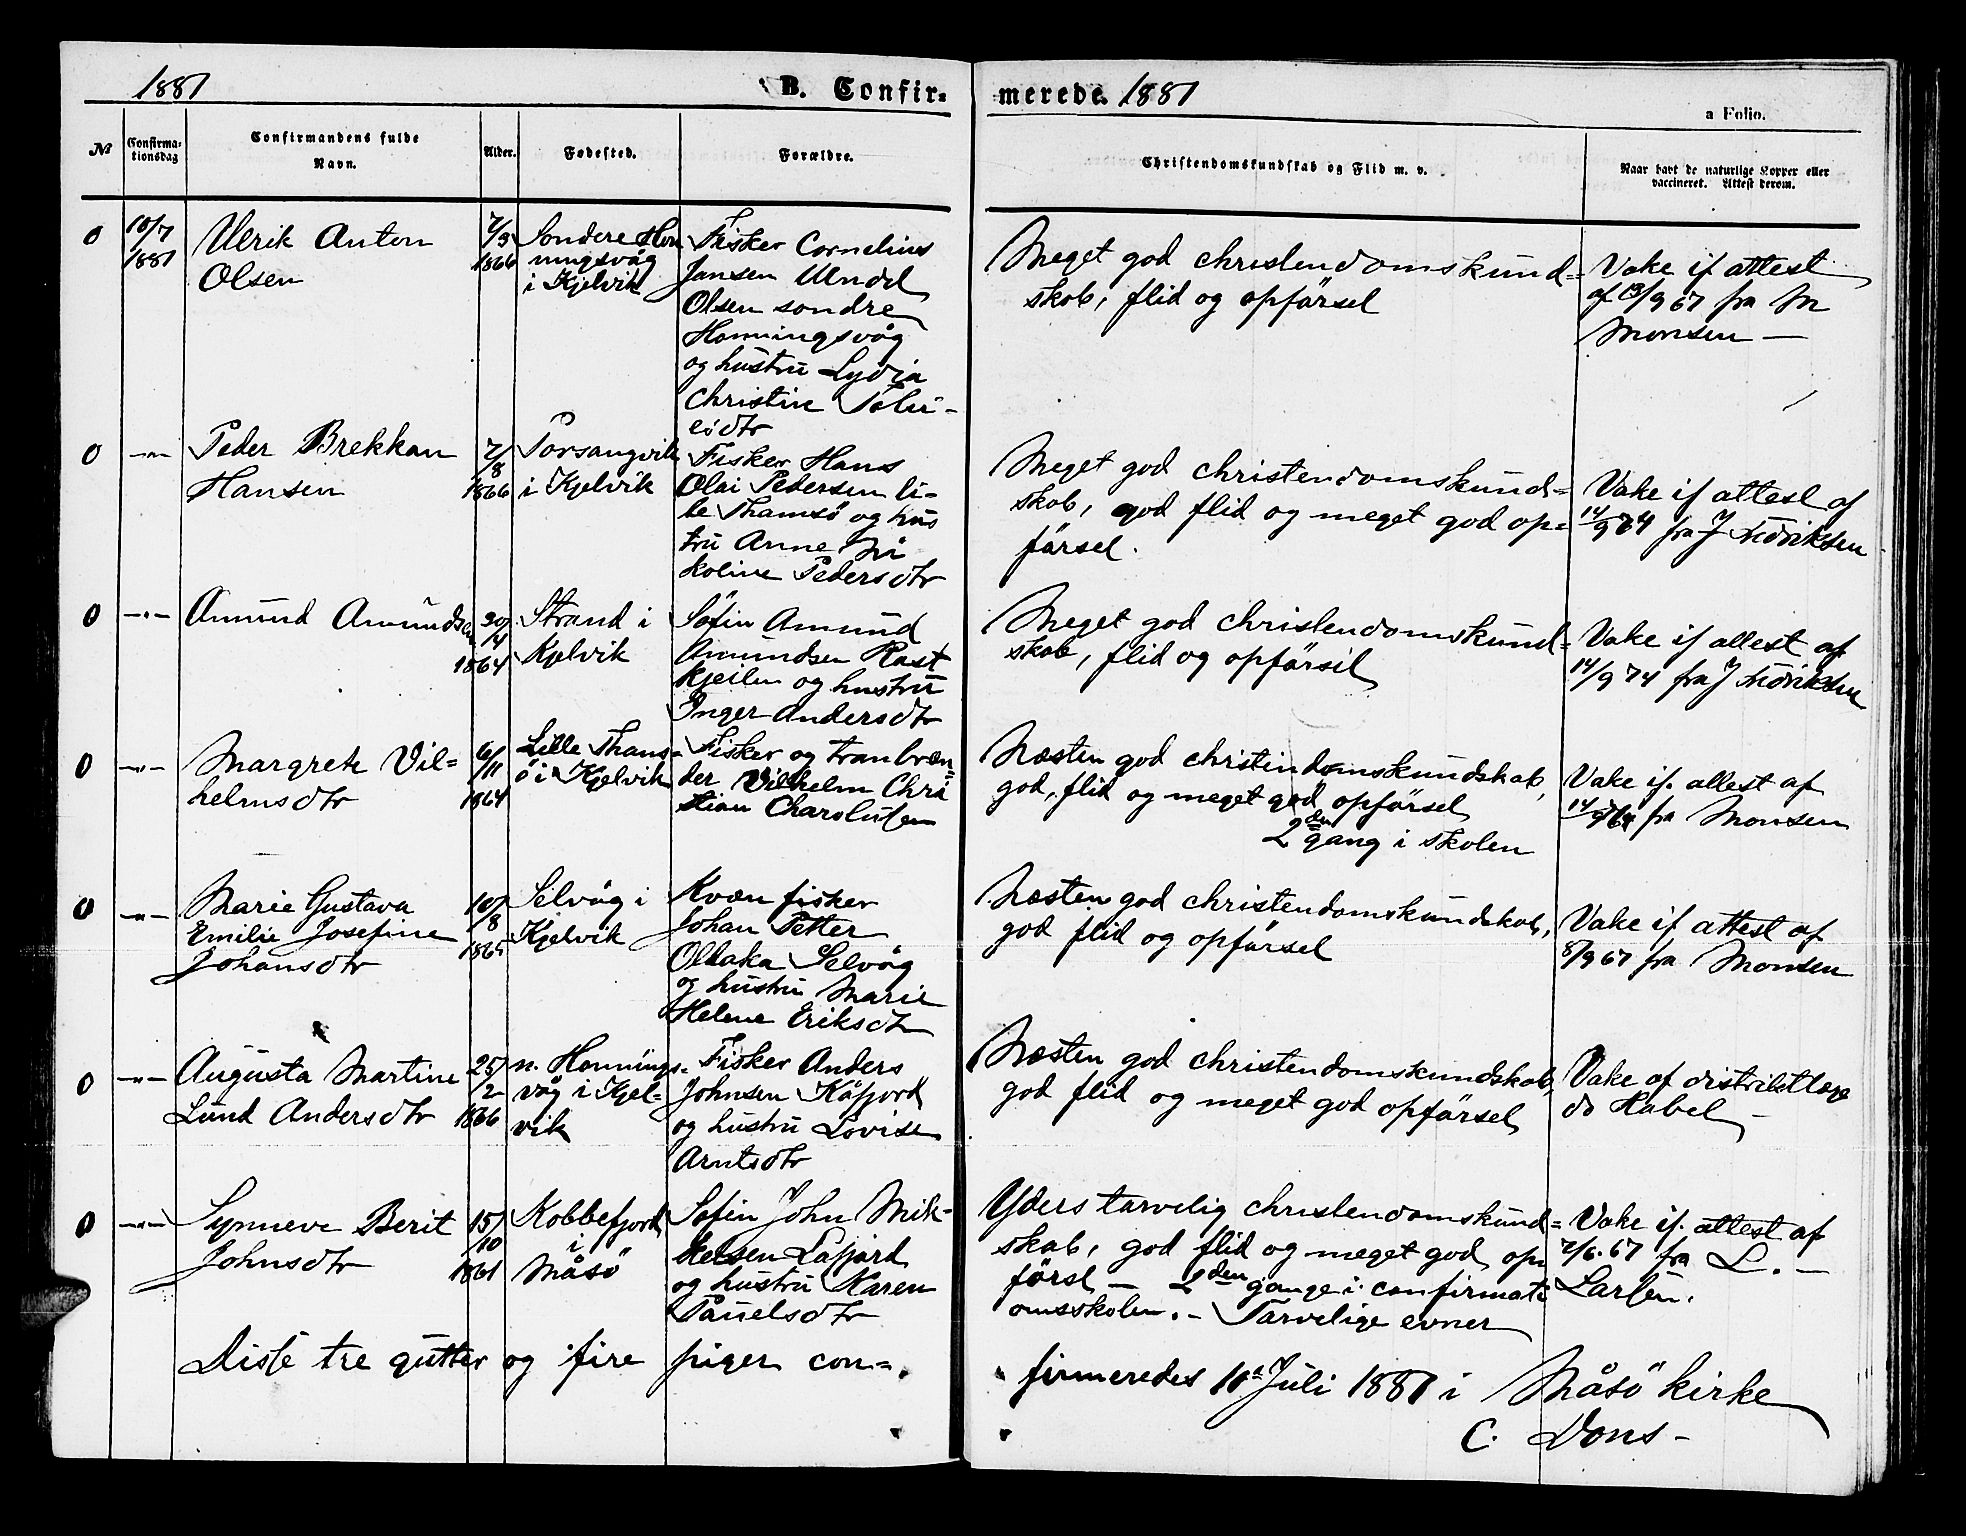 1881
B. Confir-
merede. 1881
a Folio.
No
Confirma-
tionsdag
Confirmandens fulde
Navn.
Alder.
Fødested.
Forældre.
Christendomskundskab og Flid m. v.
Naar havt de naturlige Kopper eller
vaccineret. Attest derom.
0
10/7
1881
Ulrik Anton
Olsen
7/3
1866
Sondere Hon
ningsvåg
i Kjelvik
Fisker Cornelius
Jansen
Olsen sondre
Honningsvåg
og hustru Lydia
Christine
Meget god christendomskund=
skab, flid og opførsel
Vake if attest
af 13/9 67 fra M
Monsen —
0
-"-
Peder Brekkan
Hansen
7/8
1866
Porsangvik
i Kjelvik
Fisker Hans
Olai Pedersen li-
le Thamsö og hus
tru Anne Ni
koline Pedersdtr
Meget god christendomskund=
skab, god flid og meget god op=
førsel.
Vake if attest af
14/9 74 fra J Fredriksen
0
-"-
Amund Amundsen
30/4
1864
Strand i
Kjelvik
Søfin Amund
Amundsen
og hustru
Inger Andersdtr
Meget god christendomskund=
skab, flid og opførsel
Vake if attest af
14/9 74 fra J Fredriksen
0
-"-
Margrete Vil=
helmsdtr
6/11
1864
Lille Thams=
ö i Kjelvik
Fisker og tranbræn=
der Vilhelm Chri
stian
Næsten god christendomskundskab,
god, flid og meget god opførsel
2den gang i skolen
Vake if. attest af
14/9 fra Monsen
0
-"-
Marie Gustava
Emilie Josefine
Johansdtr
10/8
1865
Selvåg i
Kjelvik
Kvæn fisker
Johan Petter
Selvåg
og hustru Marie
Helene Eriksdtr
Næsten god christendomskundskab,
god flid og opførsel
Vake if attest af
8/9 67 fra Monsen
0
-"-
Augusta Martine
Lund Andersdtr
25/2
1866
n. Honnings=
våg i Kjel=
vik
Fisker Anders
Johnsen Kåfjord
og hustru Lovise
Arntsdtr
Næsten god christendomskundskab,
god flid og meget god opførsel
Vake af distriktlæge
do Habel —
0
-"-
Synneve Berit
Johnsdtr
15/10
1861
Kobbefjord
i
Måsö
Søfin John Mik-
kelsen
og hustru Karen
Pauelsdtr
Yders tarvelig christendomskund=
skab, god flid og meget god op
førsl — 2den gange i confirmati
onsskolen. — Tarvelige evner
Vake if. attest af
7/6. 67 fra L. —
Larsen.
Disse tre gutter og fire piger con=
firmeredes 10de Juli 1881 i Måsö kirke
C. Dons —